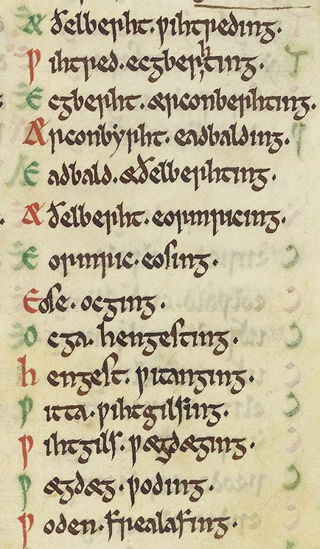 Æðelberht · ƿihtreding ·
Ƿihtred · ecgberhting ·
Ecgberht · ærconberhting ·
Ærconbyrht · eadbalding ·
Eadbald · æðelberhting ·
Æðelberht · eormricing ·
Eormric · eosing ·
Eose · ocging ·
Ocga · hengesting ·
hengest · ƿitanging ·
Ƿitta · ƿihtgilsing ·
Ƿihtgils · ƿægdæging ·
Ƿægdæg · ƿoding ·
Ƿoden · frealafing ·